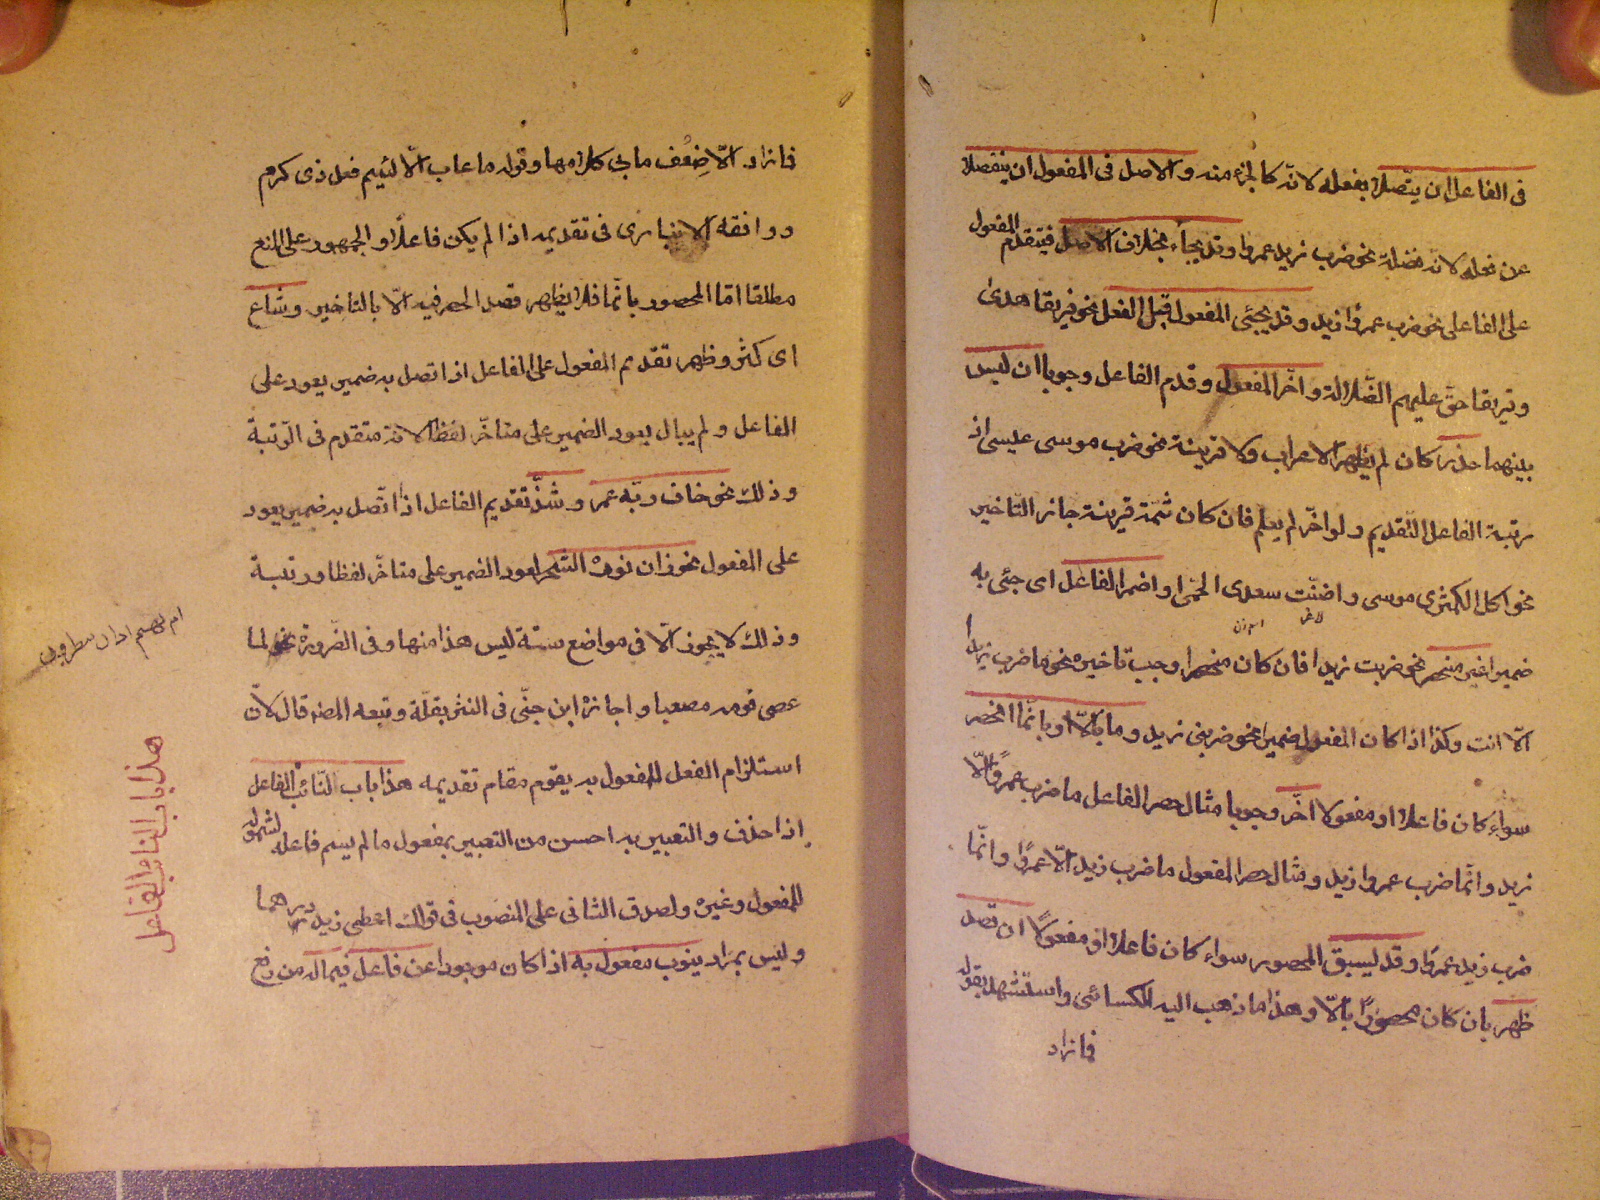 فى الفاعل ان يتّصلا بفعله لانّه كالجزء منه والاصل فى المفعول ان ينفصلا
عن فعله لانه فضلة نحو ضرب زيد عمروا وقد يجاء بخلاف الاصل فيتقدم المفعول
على الفاعل نحو ضرب عمروا زيد وقد يجئى المفعول قبل الفعل نحو فريقا هدى
وفريقا حق عليهم الضّلالة واخّر المفعول وقدم الفاعل وجوبا ان ليس
بينهما حذر كان لم يظهر الاعراب ولا قرينة نحو ضرب موسى عيسى اذ
رتبة الفاعل التّقديم ولو اخّر لم يعلم فان كان ثمّة قرينة جاز التّاخير
نحو اكل الكمثرى موسى واضنّت سعدى الحمّى او اضمر الفاعل اى جئى به
ضميرا غير منحصر نحو ضربت زيدا فان كان منحصرا وجب تاخيره نحو ما ضرب زيدا
الّا انت وكذا اذا كان المفعول ضميرا نحو ضربنى زيد وما بالّا او بانّما انحصر
سواء كان فاعلا او مفعولا اخّر وجوبا مثال حصر الفاعل ما ضرب عمروًا الّا
زيد وانّما ضرب عمروا زيد ومثال حصر المفعول ما ضرب زيد الّا عمروًا وانّما
ضرب زيد عمروًا وقد يسبق المحصور سواء كان فاعلا او مفعولًا ان قصد
ظهر بان كان محصورًا بالّا وهذا ما ذهب اليه الكسائى واستشهد بقوله
فما زاد
فما زاد الّا ضِعْف ما بى كلامها وقوله ما عاب الّا لئيم فعل ذى كرم
ووافقه الانبارى فى تقديمه اذا لم يكن فاعلًا والجمهور على المنع
مطلقا امّا المحصور بانّما فلا يظهر قصد الحصر فيه الّا بالتاخير وشاع
اى كثر وظهر تقديم المفعول على الفاعل اذا اتصل به ضمير يعود على
الفاعل ولم يبال بعود الضمير على متاخّر لفظا لانه متقدم فى الرّتبة
وذلك نحو خاف ربّه عمر وشذّ تقديم الفاعل اذا اتّصل به ضمير يعود
على المفعول نحو زان نوره الشّجر لعود الضمير على متاخّر لفظا ورتبة
وذلك لا يجوز الّا فى مواضع ستة ليس هذا منها وفى الضّرورة نحو لما
عصى قومه مصعبا واجازه ابن جنّى فى النثر بقلّة وتبعه المصـ قال لانّ
استلزام الفعل للمفعول به يقوم مقام تقديمه هذا باب النّائب الفاعل
اذا حذف والتعبير به احسن من التعبير بمفعول ما لم يسم فاعله لشموله
للمفعول وغيره ولصدق الثانى على المنصوب فى قولك اعطى زيد درهما
وليس بمراد ينوب مفعول به اذا كان موجودا عن فاعل فيما له من رفع
هذا باب النائب الفاعل